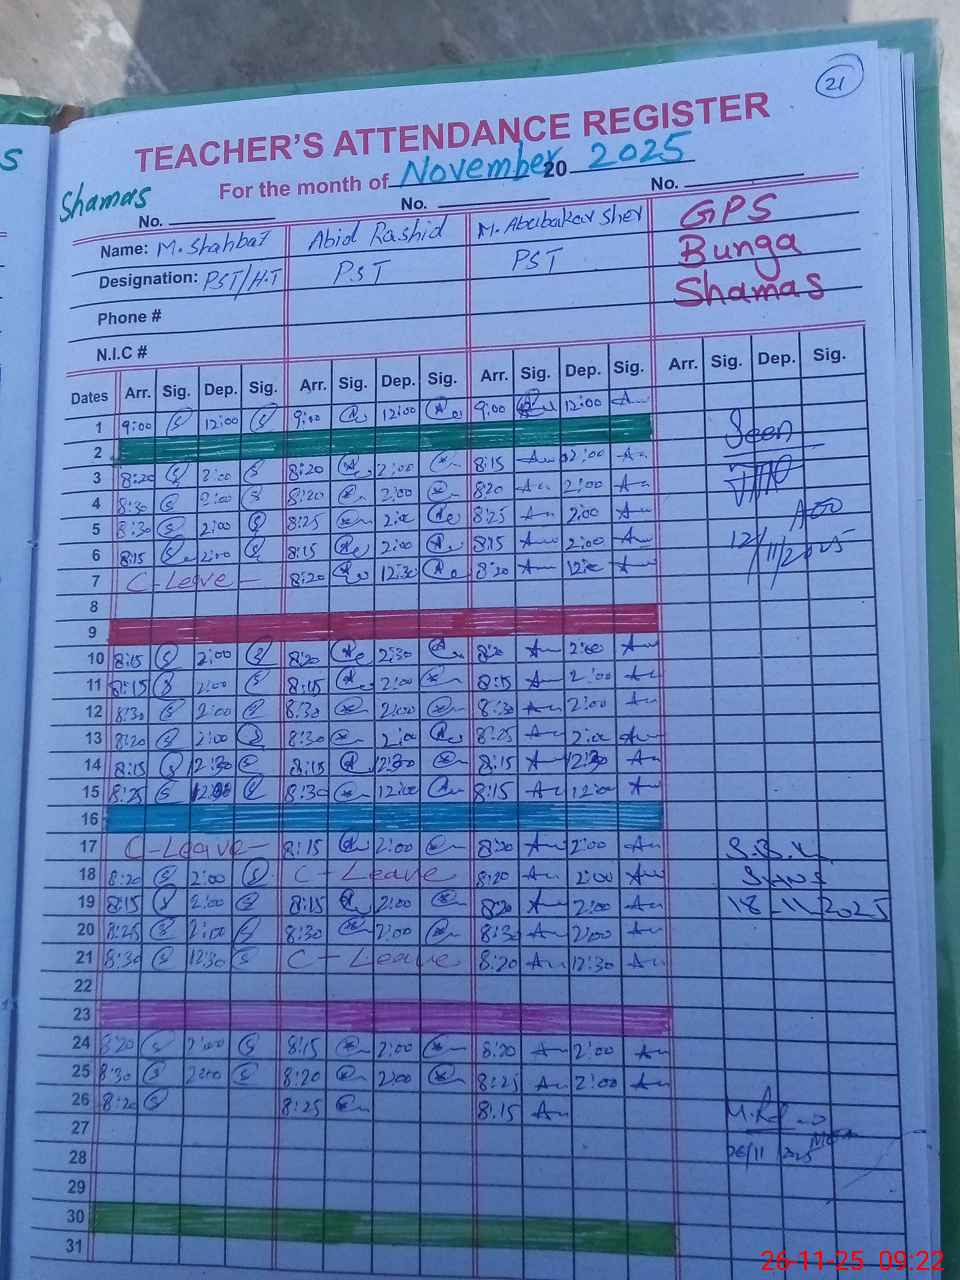 S
21
TEACHER'S ATTENDANCE REGISTER
For the month of November 20 2025
Shamas
No. No. No.
Name: M. Shahbaz Abid Rashid M. Abubakar Sher GPS
Designation: PST/H.T PST PST Bunga
Phone # Shamas
N.I.C #
Dates Arr. Sig. Dep. Sig. Arr. Sig. Dep. Sig. Arr. Sig. Dep. Sig. Arr. Sig. Dep. Sig.
1 9:00 12:00 9:00 12:00 9:00 12:00
2 Seen
3 8:20 2:00 8:20 2:00 8:15 2:00
4 8:30 2:00 8:20 2:00 8:20 2:00
5 8:30 2:00 8:25 2:00 8:25 2:00 AEO
6 8:15 2:00 8:15 2:00 8:15 2:00 12/11/2025
7 C-Leave 8:20 12:30 8:20
8
9
10 8:15 2:00 8:20 2:30 8:20 2:00
11 8:15 2:00 8:15 2:00 8:15 2:00
12 8:30 2:00 8:30 2:00 8:30 2:00
13 8:20 2:00 8:30 2:00 8:25 2:00
14 8:15 12:30 8:15 12:30 8:15 12:30
15 8:25 12:00 8:30 12:00 8:15 12:00
16
17 C-Leave 8:15 2:00 8:20 2:00
18 8:20 2:00 C-Leave 8:20 2:00
19 8:15 2:00 8:15 2:00 8:20 2:00 18-11-2025
20 8:25 2:00 8:30 2:00 8:30 2:00
21 8:30 12:30 C-Leave 8:20 12:30
22
23
24 8:20 2:00 8:15 2:00 8:20 2:00
25 8:30 2:00 8:20 2:00 8:25 2:00
26 8:20 8:25 8:15
27
28 26/11/2025
29
30
31
26-11-25 09:22